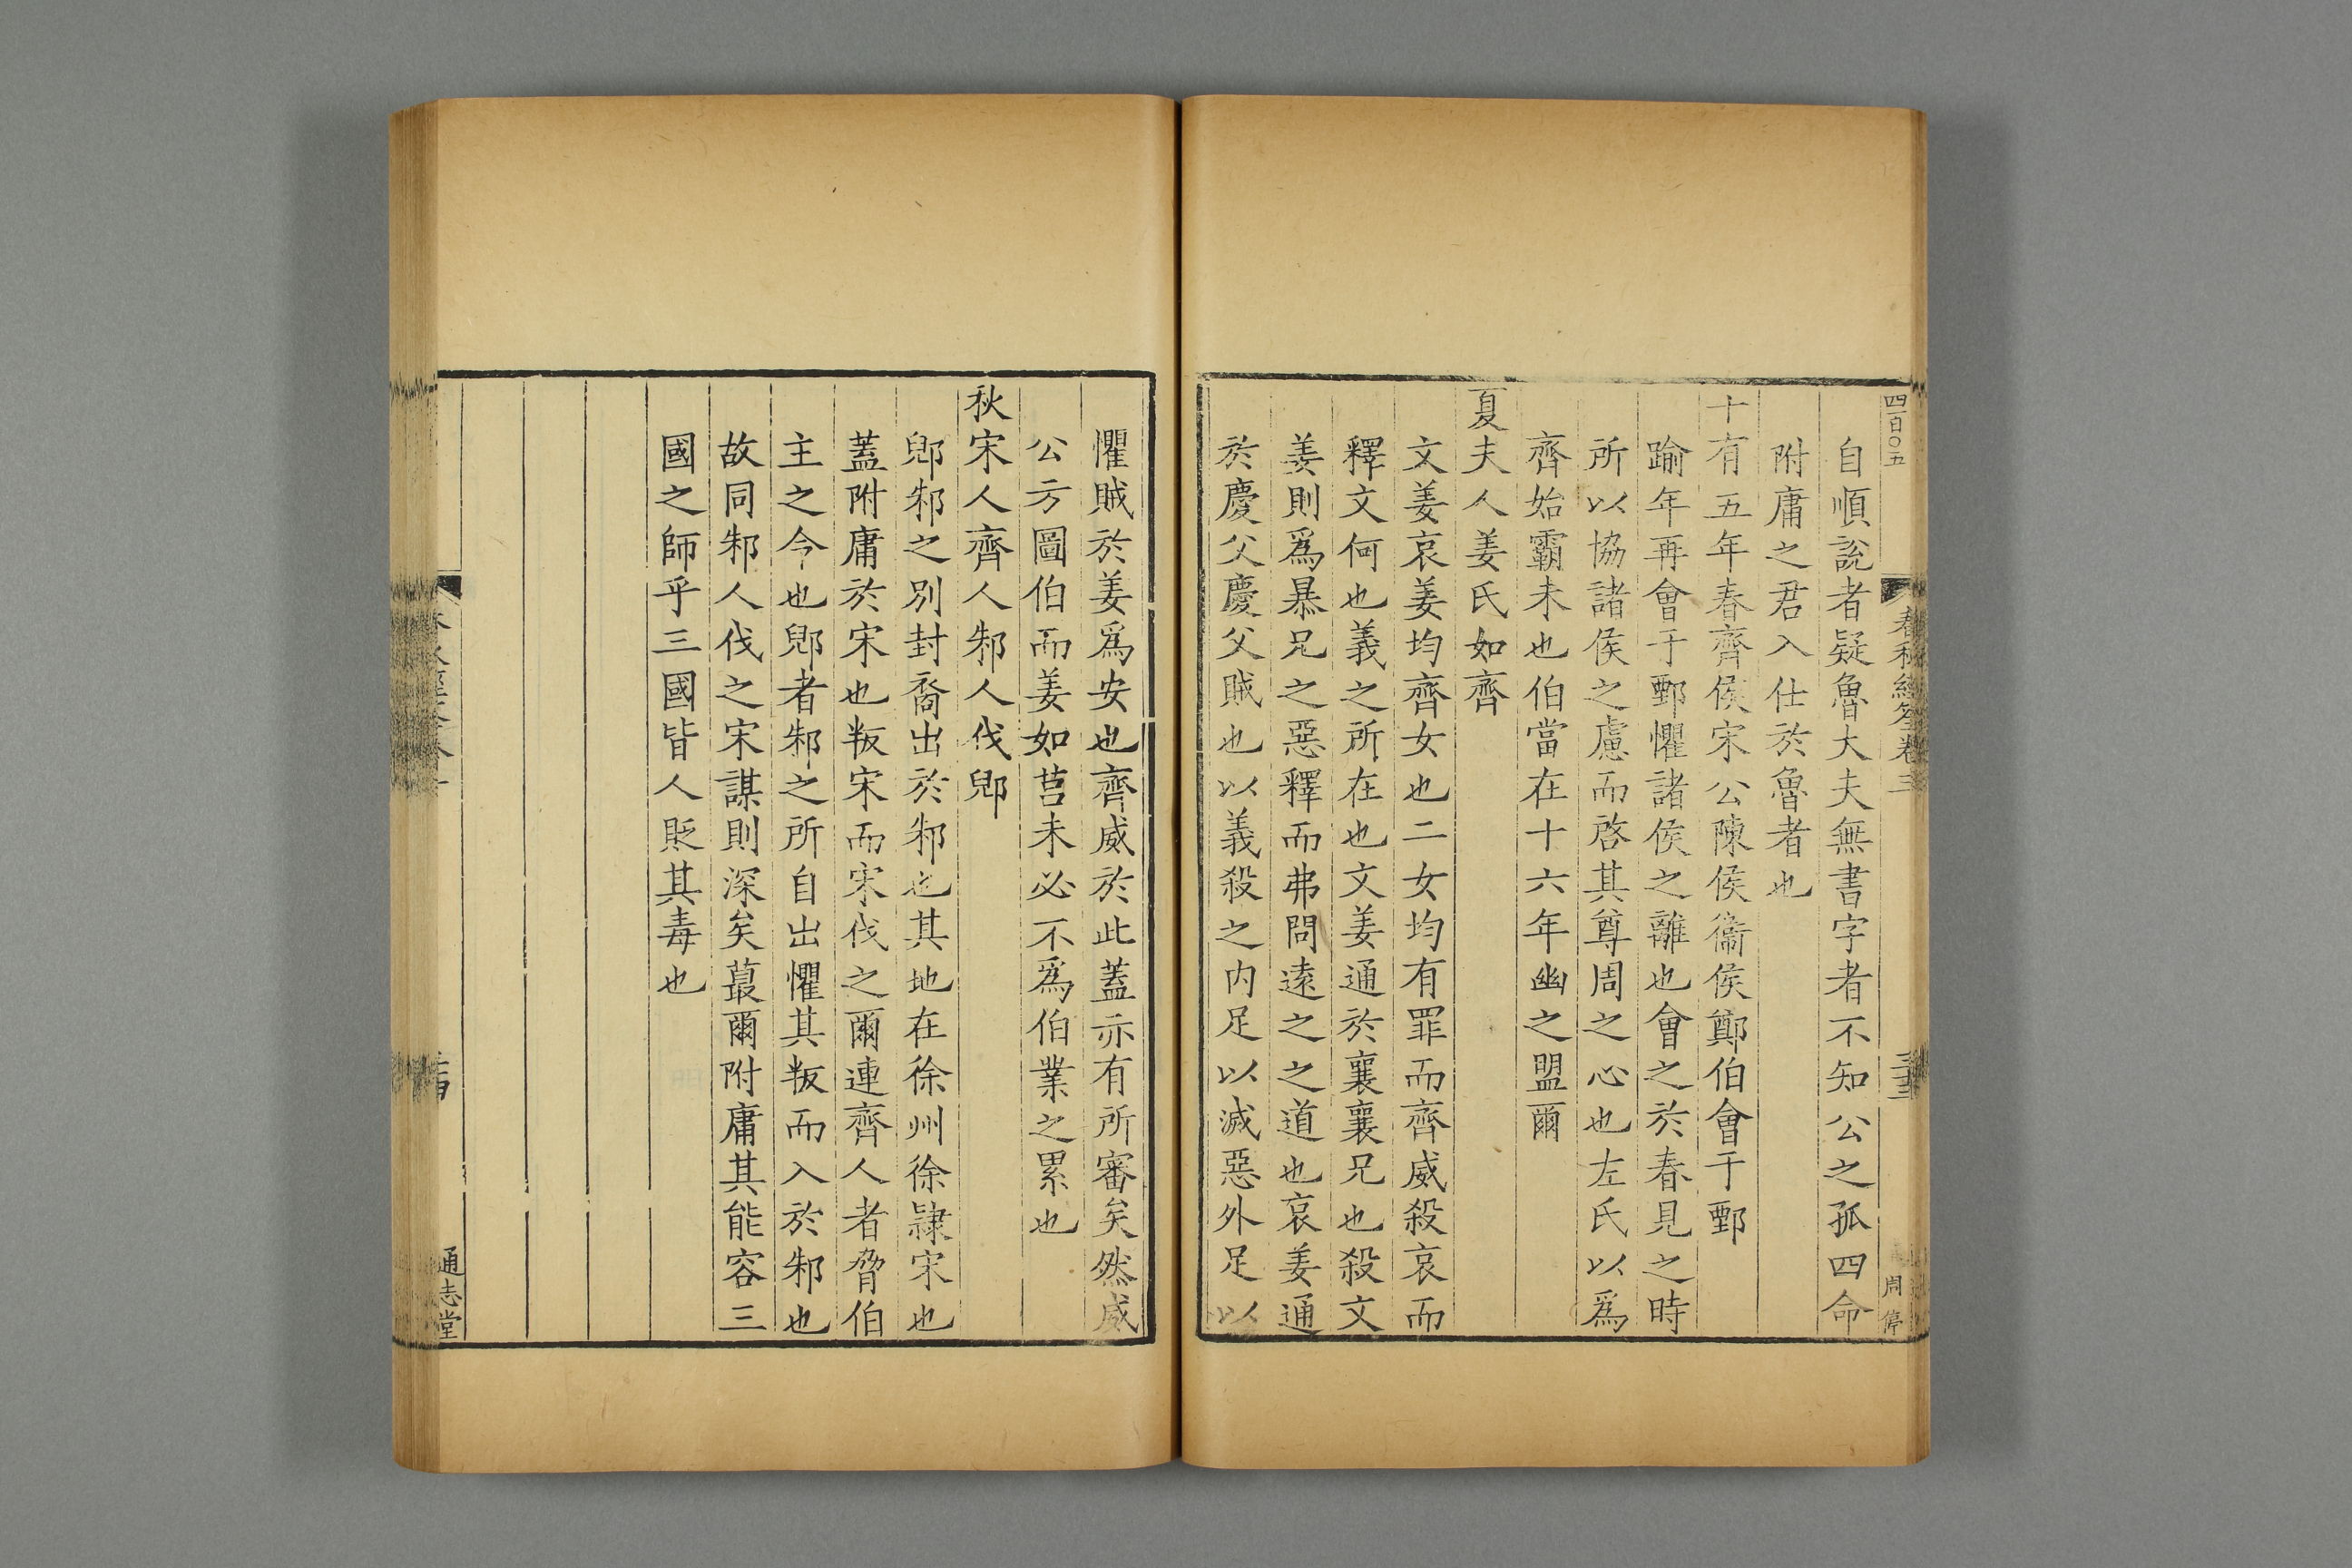 四百〇五
春秋經筌卷三
三三
自順說者疑魯大夫無書字者不知公之孤四命
附庸之君入仕於魯者也
十有五年春齊侯宋公陳侯衞侯鄭伯會于鄄
踰年再會于鄄懼諸侯之離也會之於春見之時
所以協諸侯之慮而啓其尊周之心也左氏以爲
齊始霸未也伯當在十六年幽之盟爾
夏夫人姜氏如齊
文姜哀姜均齊女也二女均有罪而齊威殺哀而
釋文何也義之所在也文姜通於襄襄兄也殺文
姜則爲暴兄之惡釋而弗問遠之之道也哀姜通
於慶父慶父賊也以義殺之内足以滅惡外足以
懼賊於姜爲安也齊威於此蓋亦有所審矣然威
公方圖伯而姜如莒未必不爲伯業之累也
秋宋人齊人邾人伐郳
郳邾之別封裔出於邾也其地在徐州徐隷宋也
蓋附庸於宋也叛宋而宋伐之爾連齊人者脅伯
主之今也郳者邾之所自出懼其叛而入於邾也
故同邾人伐之宋謀則深矣蕞爾附庸其能容三
國之師乎三國皆人貶其毒也
通志堂